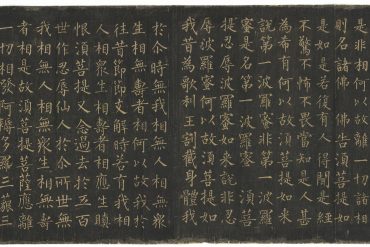 是非相何以故離一切諸相
則名諸佛佛告須菩提如
是如是若復有人得聞是經
不驚不怖不畏當知是人甚
為希有何以故須菩提如來
說第一波羅蜜非第一波羅
蜜是名第一波羅蜜須菩
提忍辱波羅蜜如來說非忍
辱波羅蜜何以故須菩提如
我昔為歌利王割截身體我
於尒時無我相無人相無眾
生相無壽者相何以故我於
往昔節節支解時若有我相
人相眾生相壽者相應生瞋
恨須菩提又念過去於五百
世作忍辱仙人於尒所世無
我相無人相無眾生相無壽
者相是故須菩提菩薩應離
一切相發阿耨多羅三藐三